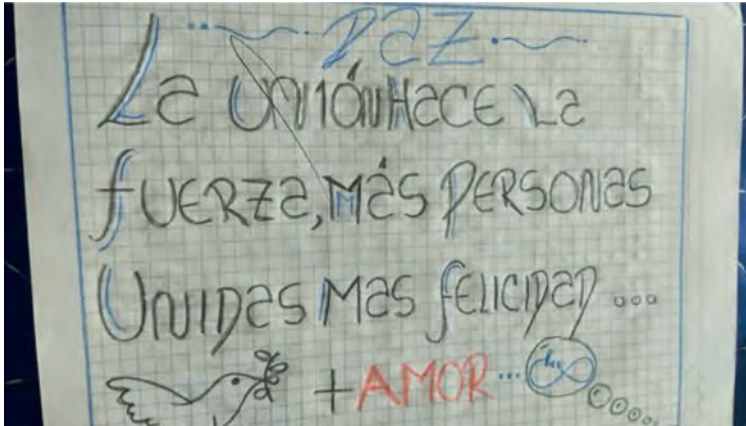 PAZ
La UNIÓN HaCE La
fUERZa, MáS PERSONaS
UNIDaS MaS fELICIDaD...
+AMOR...